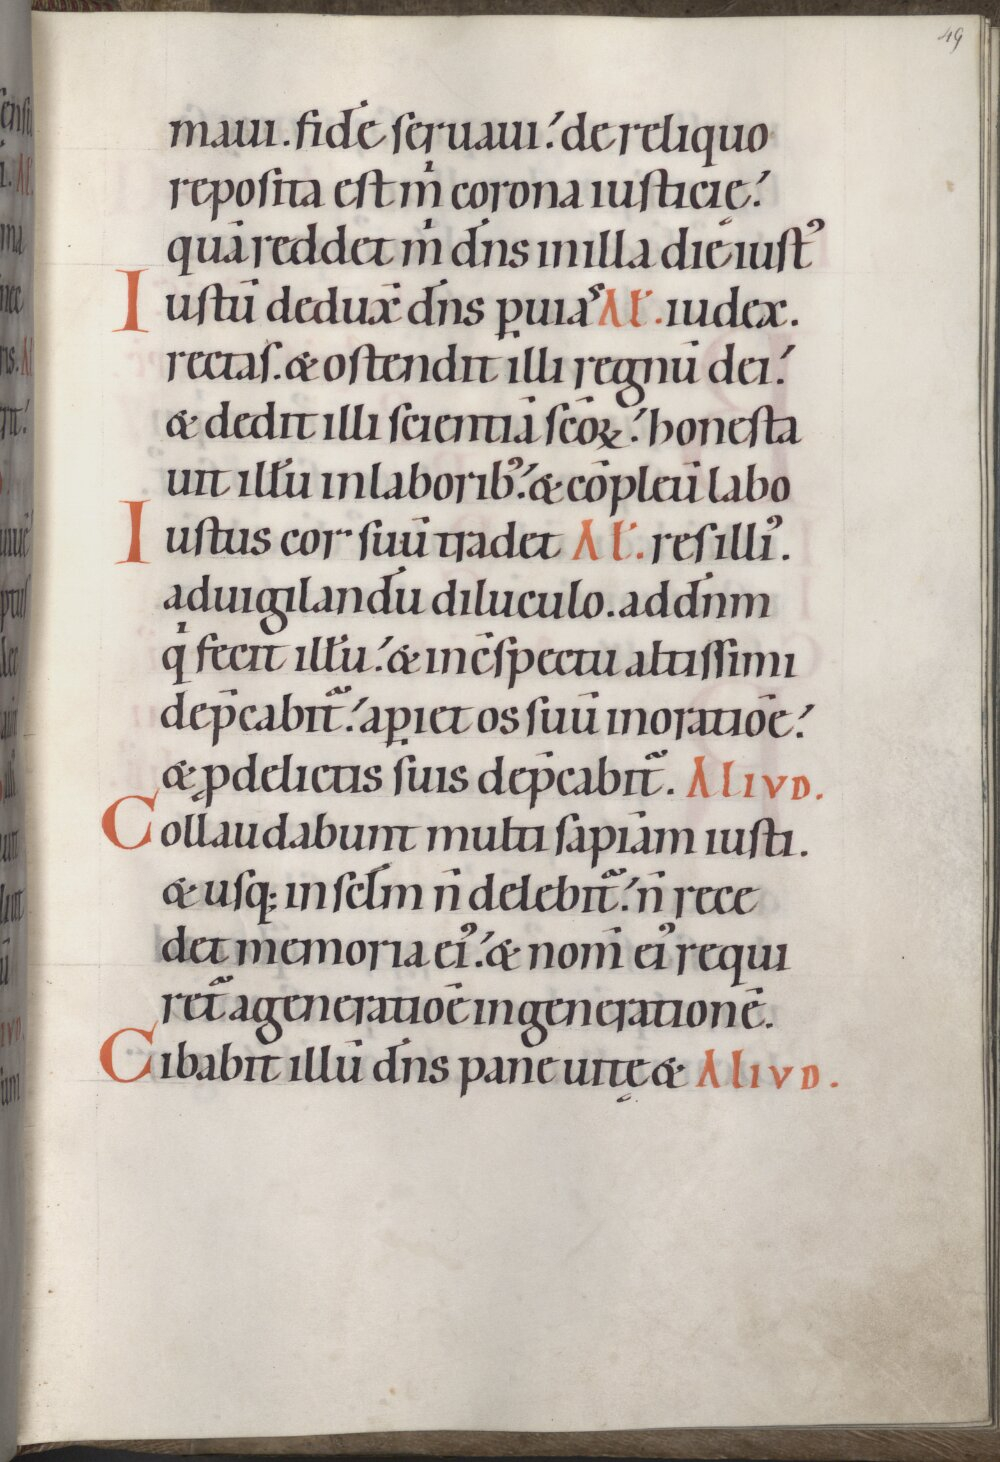 49
maui. fidē seruaui: de reliquo
reposita est m̄ corona iusticie:
quā reddet m̄ dn̄s in illa die iustꝰ
Iustū dedux̄ dn̄s ꝑ uias Al̄. iudex.
rectas. & ostendit illi regnū dei:
& dedit illi scientiā scōꝝ: honesta
uit illū in laboribꝰ: & cōpleū labo
Iustus cor suū tradet Al̄. res illiꝰ.
ad uigilandū diluculo. ad dn̄m
q̇ fecit illū: & in c̄spectu altissimi
dep̄cabit᷑: aꝑiet os suū in oratiōe:
& ꝓ delictis suis dep̄cabit᷑. Aliud.
Collaudabunt multi sapiām iusti.
& usq; in sclm̄ n̄ delebit᷑: n̄ rece
det memoria eiꝰ: & nom̄ eiꝰ requi
ret᷑ a generatiōe in generationē.
Cibabit illū dn̄s pane uitę & Aliud.